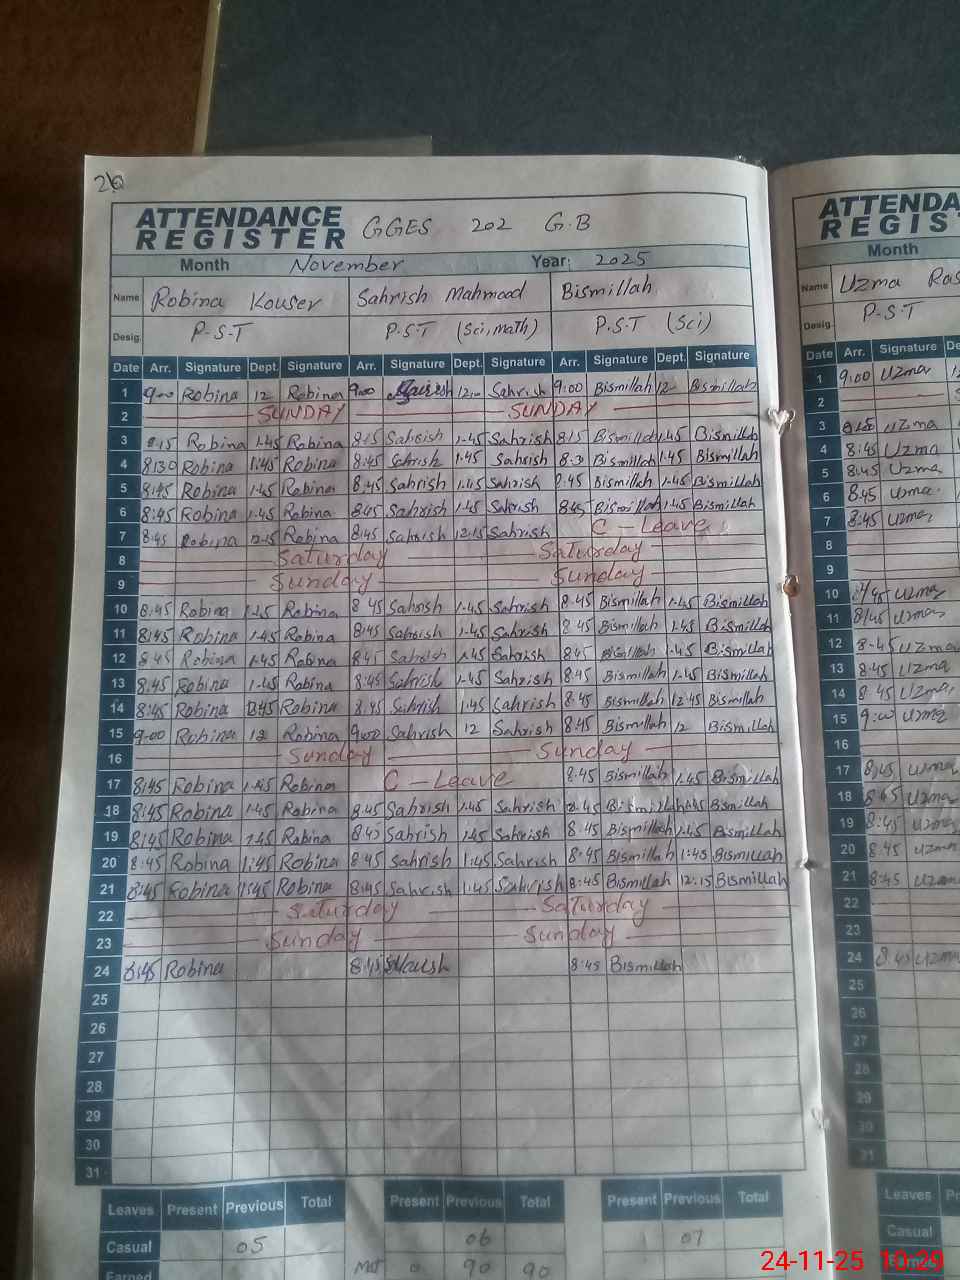 ATTENDANCE REGISTER GGES 202 G.B
Month November Year: 2025
Name Robina Kouser Sahrish Mahmood Bismillah
Desig. P.S.T P.S.T (Sci, math) P.S.T (Sci)
Date Arr. Signature Dept. Signature Arr. Signature Dept. Signature Arr. Signature Dept. Signature
1 9:00 Robina 12 Robina 9:00 12:00 Sahrish 9:00 Bismillah 12 Bismillah
2 SUNDAY SUNDAY
3 8:15 Robina 1:45 Robina 8:15 Sahrish 1:45 Sahrish 8:15 Bismillah 1:45 Bismillah
4 8:30 Robina 1:45 Robina 8:45 Sahrish 1:45 Sahrish 8:30 Bismillah 1:45 Bismillah
5 8:45 Robina 1:45 Robina 8:45 Sahrish 1:45 Sahrish 8:45 Bismillah 1:45 Bismillah
6 8:45 Robina 1:45 Robina 8:45 Sahrish 1:45 Sahrish 8:45 Bismillah 1:45 Bismillah
7 8:45 Robina 12:15 Robina 8:45 Sahrish 12:15 Sahrish C - Leave
8 Saturday Saturday
9 Sunday Sunday
10 8:45 Robina 1:45 Robina 8:45 Sahrish 1:45 Sahrish 8:45 Bismillah 1:45 Bismillah
11 8:45 Robina 1:45 Robina 8:45 Sahrish 1:45 Sahrish 8:45 Bismillah 1:45 Bismillah
12 8:45 Robina 1:45 Robina 8:45 Sahrish 1:45 Sahrish 8:45 Bismillah 1:45 Bismillah
13 8:45 Robina 1:45 Robina 8:45 Sahrish 1:45 Sahrish 8:45 Bismillah 1:45 Bismillah
14 8:45 Robina Robina 8:45 Sahrish 1:45 Sahrish 8:45 Bismillah 12:45 Bismillah
15 9:00 Robina 12 Robina 9:00 Sahrish 12 Sahrish 8:45 Bismillah 12 Bismillah
16 Sunday Sunday
17 8:45 Robina 1:45 Robina C - Leave 8:45 Bismillah 1:45 Bismillah
18 8:45 Robina 1:45 Robina 8:45 Sahrish 1:45 Sahrish 8:45 Bismillah 1:45 Bismillah
19 8:45 Robina 1:45 Robina 8:45 Sahrish 1:45 Sahrish 8:45 Bismillah 1:45 Bismillah
20 8:45 Robina 1:45 Robina 8:45 Sahrish 1:45 Sahrish 8:45 Bismillah 1:45 Bismillah
21 8:45 Robina 1:45 Robina 8:45 Sahrish 1:45 Sahrish 8:45 Bismillah 12:15 Bismillah
22 Saturday Saturday
23 Sunday Sunday
24 8:45 Robina 8:45 8:45 Bismillah
25
26
27
28
29
30
31
Leaves Present Previous Total Present Previous Total Present Previous Total
Casual 05 06 1 07
Earned 0 90 90
ATTENDA
REGIS
Month
Name Uzma
Desig. P.S.T
Date Arr. Signature
1 9:00 Uzma
2
3 8:15 Uzma
4 8:45 Uzma
5 8:45 Uzma
6 8:45 Uzma
7 8:45 Uzma
8
9
10 8:45 Uzma
11 8:45 Uzma
12 8:45 Uzma
13 8:45 Uzma
14 8:45 Uzma
15 9:00 Uzma
16
17 8:45 Uzma
18 8:45 Uzma
19 8:45 Uzma
20 8:45 Uzma
21 8:45 Uzma
22
23
24 8:45 Uzma
25
26
27
28
29
30
31
Leaves
Casual
24-11-25 10:29